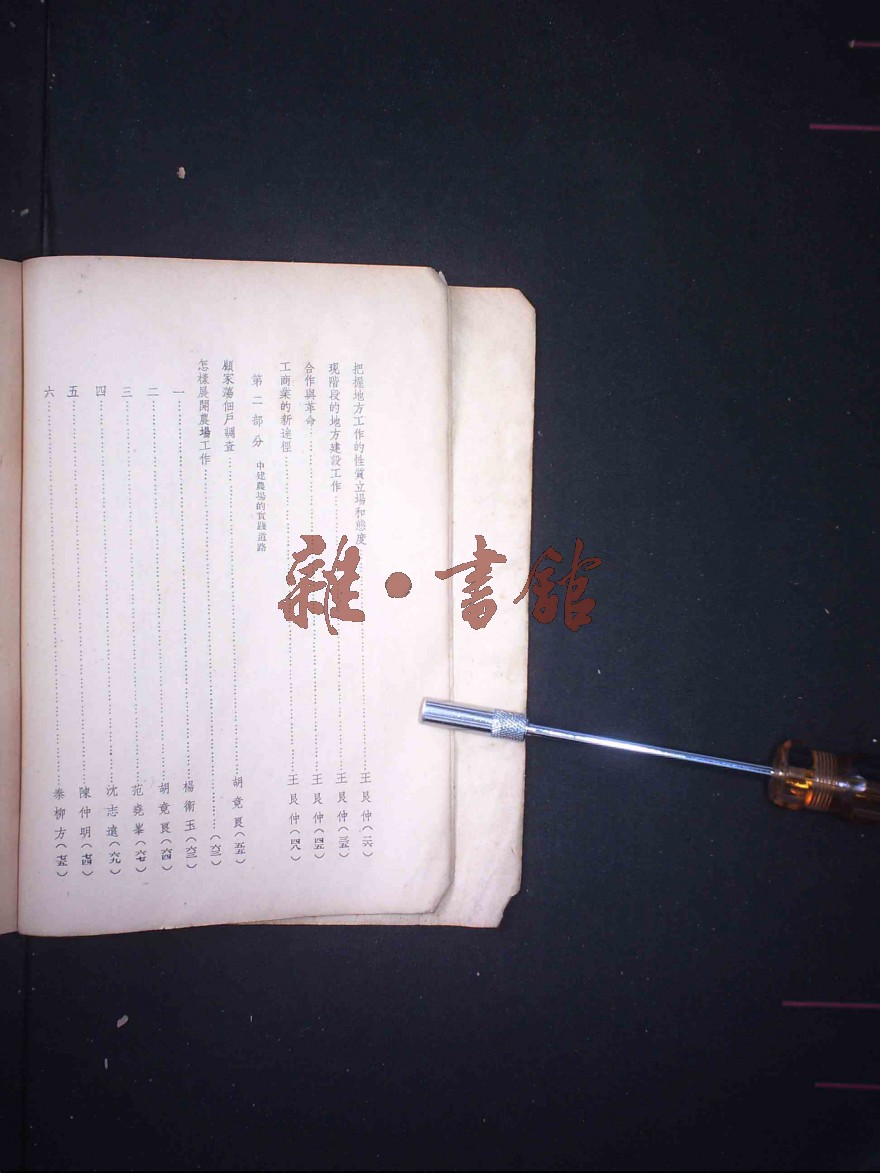 把握地方工作的性質立場和態度……王艮仲(二六)
現階段的地方建設工作……王艮仲(三五)
合作與革命……王艮仲(四五)
工商業的新途徑……王艮仲(四八)
第二部分 中建農場的實踐道路
顧家蕩佃戶調查……胡竟良(五五)
怎樣展開農場工作……(六三)
一……楊衛玉(六三)
二……胡竟良(六四)
三……范堯峯(六七)
四……沈志遠(六九)
五……陳仲明(七四)
六……秦柳方(七五)
雜·書館